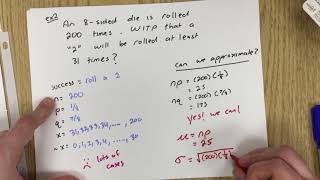 ex2) An 8-sided die is rolled
200 times. WITP that a
"2" will be rolled at least
31 times?
success = roll a 2
n = 200
p = 1/8
q = 7/8
x = 31, 32, 33, 34, ..., 200
~x = 0, 1, 2, 3, 4, ..., 30
lots of
cases
can we approximate?
np = (200)(1/8)
= 25
nq = (200)(7/8)
= 175
yes! we can!
μ = np
= 25